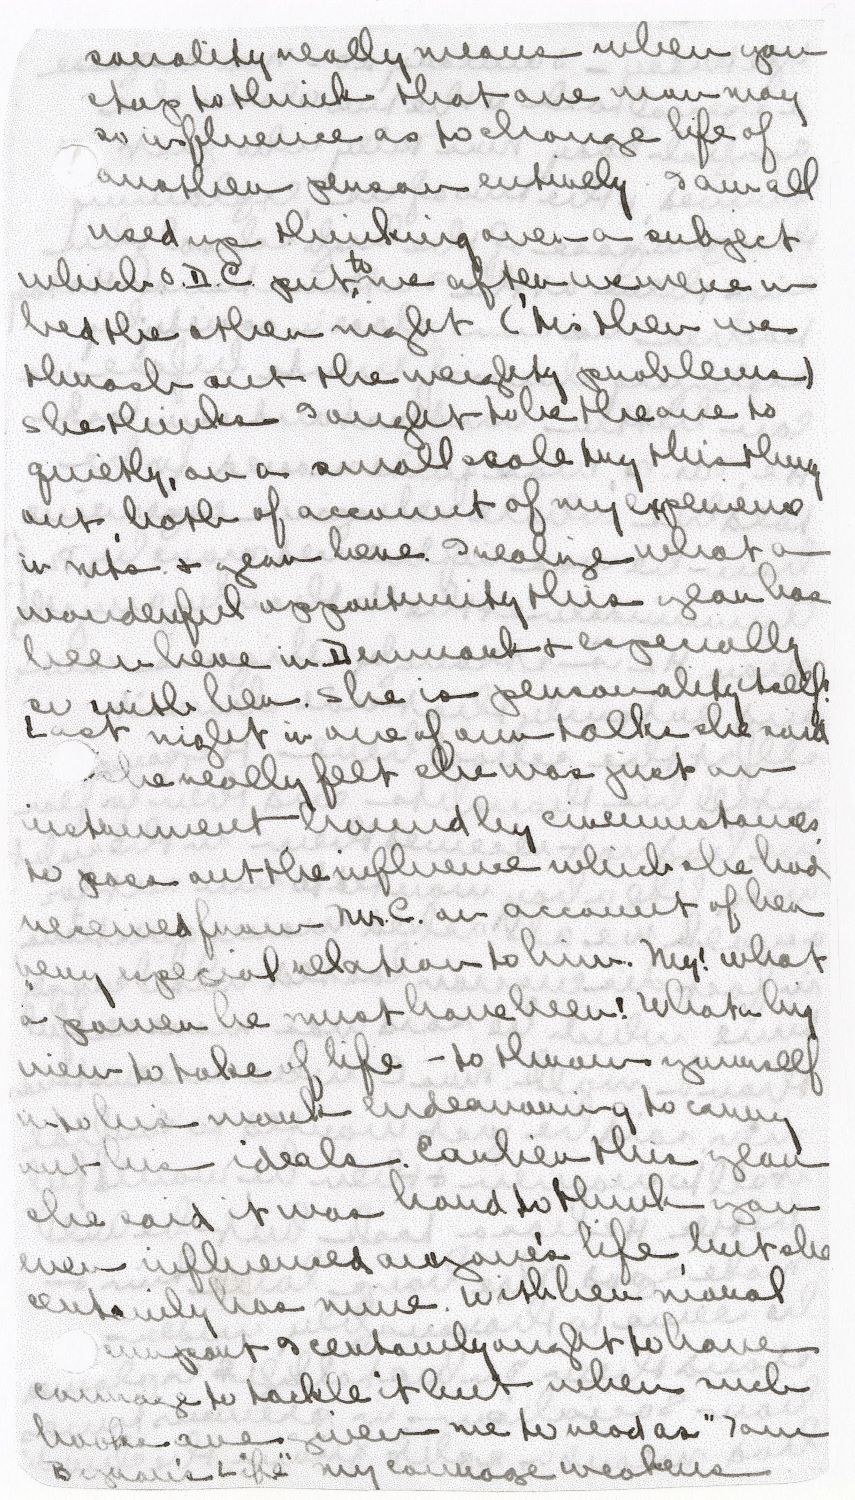 sonality really means when you
stop to think that one man may
so influence as to change life of
another person entirely. I am all
used up thinking over a subject
which O.D.C. put to me after we were in
bed the other night ('tis then we
thrash out the weighty problems)
she thinks I ought to be the one to
quietly, on a small scale try this thing
out both of account of my experience
in mts. & year here. I realize what a
wonderful opportunity this year has
been here in Denmark & especially
so with her. She is personality itself!
Last night in one of our talks she said
she really felt she was just an
instrument bound by circumstances
to pass out the influence which she had
received from Mr. C. on account of her
very special relation to him. My! what
a power he must have been! What a big
view to take of life - to throw yourself
into his work endeavoring to carry
out his ideals. Earlier this year
she said it was hard to think you
ever influenced anyone's life, but she
certainly has mine. With her moral
support I certainly ought to have
courage to tackle it but when such
books are given me to read as "Tom
Life" my courage weakens